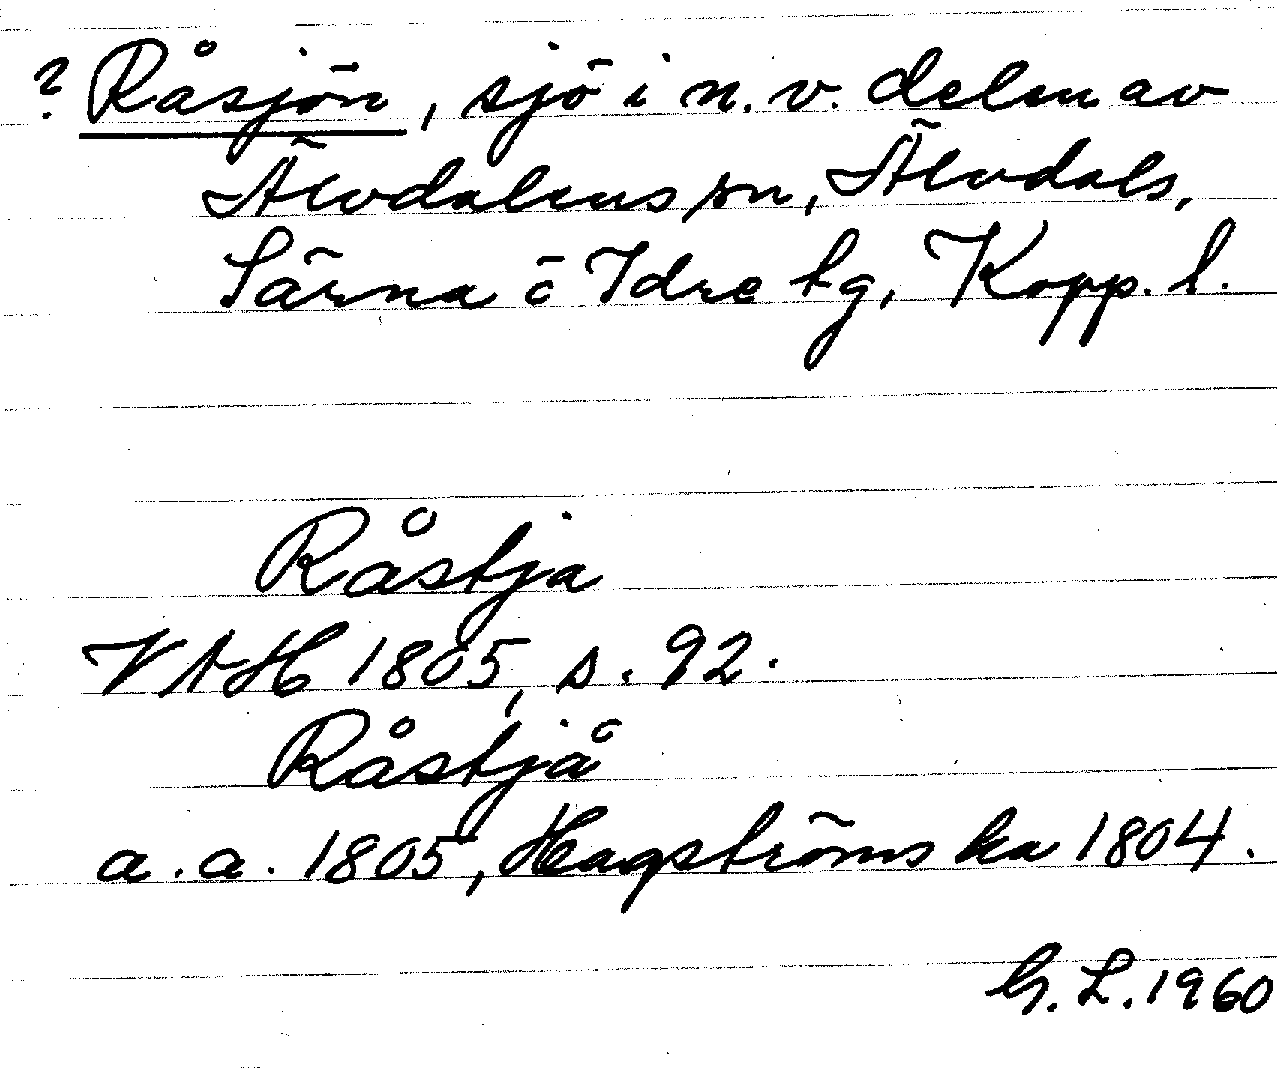 ? Råsjön, sjö i n. v. delen av
Älvdalens sn, Älvdals,
Särna o Idre tg, Kopp. l.
Råstja
VAH 1805, s. 92.
Råstjå
a. a. 1805, Hagströms ka 1804.
G. L. 1960